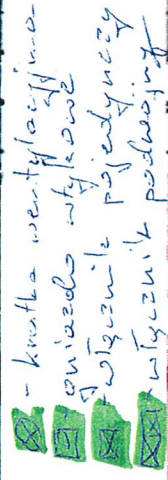 - kratka wentylacyjna
gniazdo wtykowe
- włącznik pojedynczy
- włącznik podwójny